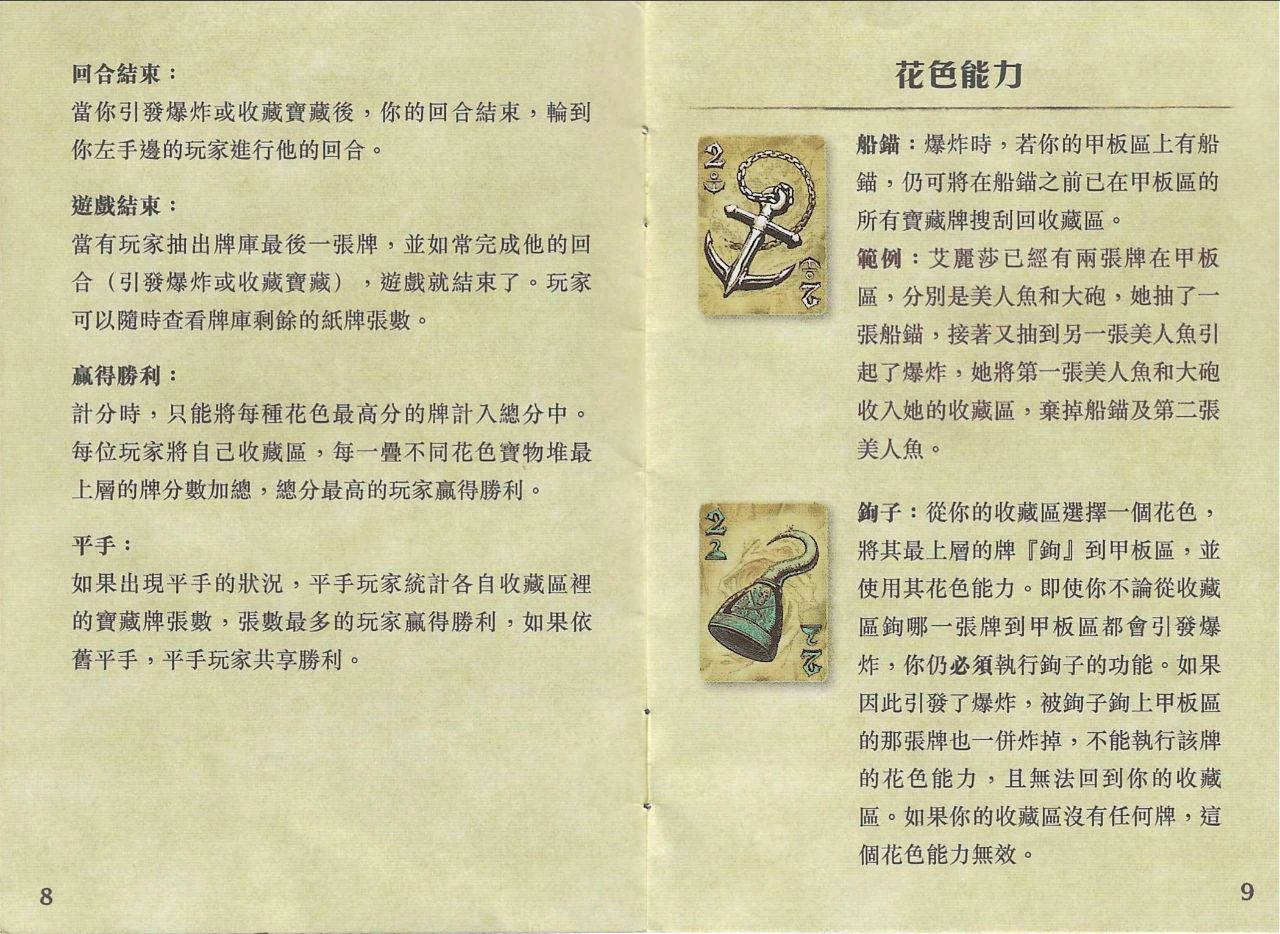 回合結束：
當你引發爆炸或收藏寶藏後，你的回合結束，輪到
你左手邊的玩家進行他的回合。
遊戲結束：
當有玩家抽出牌庫最後一張牌，並如常完成他的回
合（引發爆炸或收藏寶藏），遊戲就結束了。玩家
可以隨時查看牌庫剩餘的紙牌張數。
贏得勝利：
計分時，只能將每種花色最高分的牌計入總分中。
每位玩家將自己收藏區，每一疊不同花色寶物堆最
上層的牌分數加總，總分最高的玩家贏得勝利。
平手：
如果出現平手的狀況，平手玩家統計各自收藏區裡
的寶藏牌張數，張數最多的玩家贏得勝利，如果依
舊平手，平手玩家共享勝利。
8
花色能力
2
2
船錨：爆炸時，若你的甲板區上有船
錨，仍可將在船錨之前已在甲板區的
所有寶藏牌搜刮回收藏區。
範例：艾麗莎已經有兩張牌在甲板
區，分別是美人魚和大砲，她抽了一
張船錨，接著又抽到另一張美人魚引
起了爆炸，她將第一張美人魚和大砲
收入她的收藏區，棄掉船錨及第二張
美人魚。
2
2
鉤子：從你的收藏區選擇一個花色，
將其最上層的牌『鉤』到甲板區，並
使用其花色能力。即使你不論從收藏
區鉤哪一張牌到甲板區都會引發爆
炸，你仍必須執行鉤子的功能。如果
因此引發了爆炸，被鉤子鉤上甲板區
的那張牌也一併炸掉，不能執行該牌
的花色能力，且無法回到你的收藏
區。如果你的收藏區沒有任何牌，這
個花色能力無效。
9